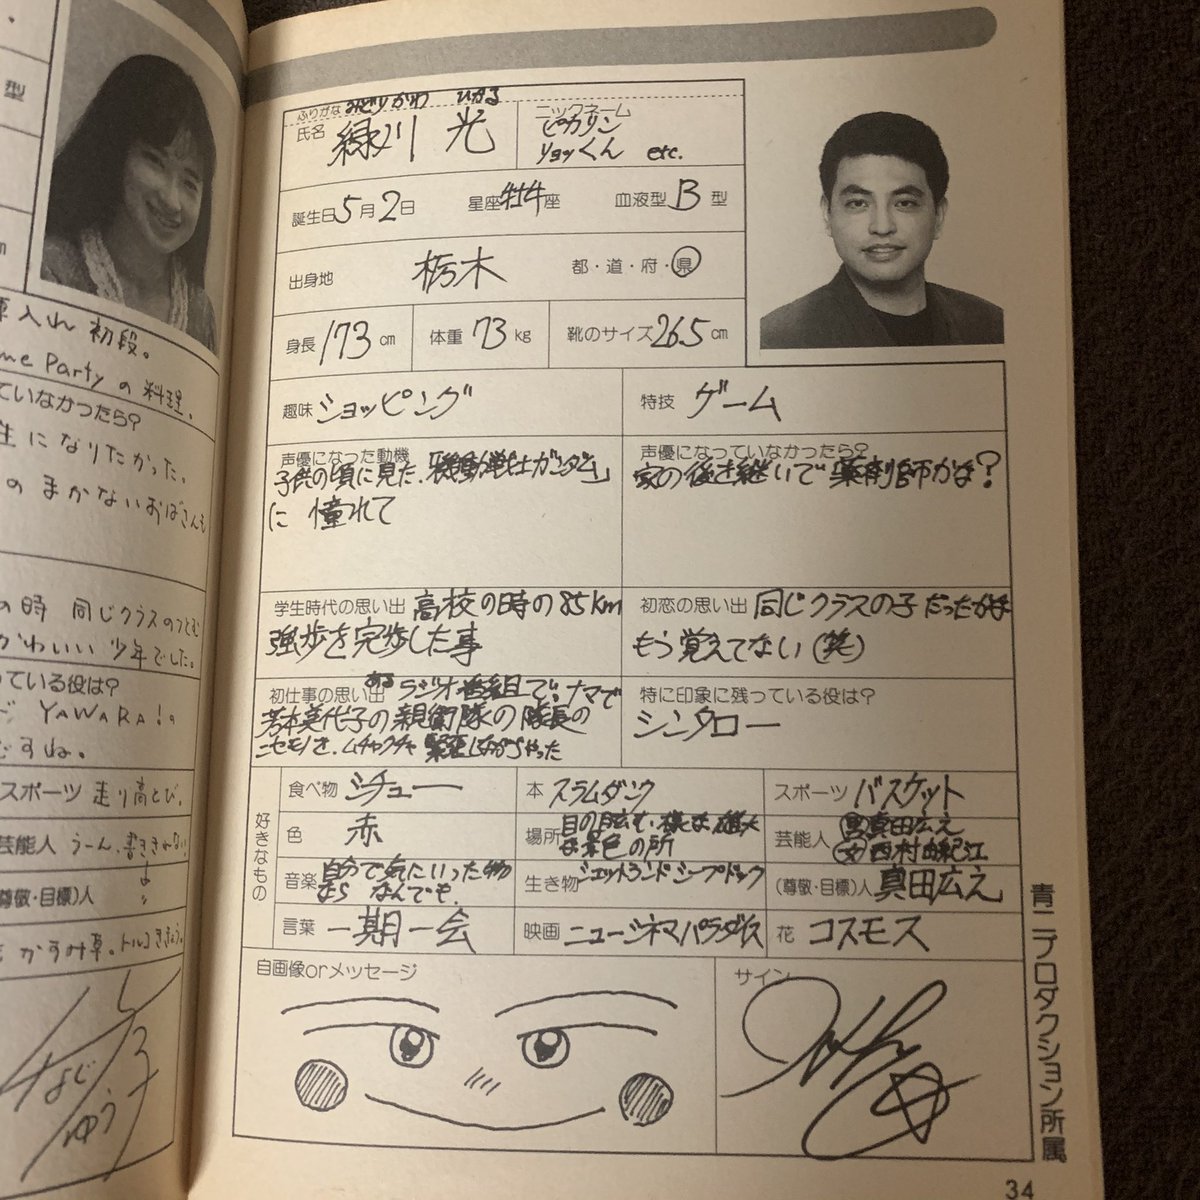 型
m
庫入れ 初段。
me Party の 料理。
ていなかったら?
生になりたかった。
の まかないおばさんも
の時 同じクラスのつとむ
かわいい 少年でした。
っている役は?
YAWARA!の
ですね。
スポーツ 走り高とび。
芸能人 うーん、書ききれない
(尊敬・目標)人
かすみ草。トルコききょう。
ふりがな みどりかわ ひかる
氏名 緑川 光
ニックネーム
ピカリン
リョッくん etc.
誕生日 5月2日 星座 牡牛座 血液型 B型
出身地 栃木 都・道・府・県
身長 173cm 体重 73kg 靴のサイズ 26.5cm
趣味 ショッピング
特技 ゲーム
声優になった動機
子供の頃に見た、「機動戦士ガンダム」
に 憧れて
声優になっていなかったら?
家の後を継いで 薬剤師かな?
学生時代の思い出 高校の時の85km
強歩を完歩した事
初恋の思い出 同じクラスの子だったかな
もう覚えてない(笑)
初仕事の思い出 あるラジオ番組で、ナマで
芳本美代子の親衛隊の隊長の
ニセモノを、ムチャクチャ 緊張しながらやった
特に印象に残っている役は?
シンタロー
好きなもの
食べ物 シチュー
本 スラムダンク
スポーツ バスケット
色 赤
場所 目の眩む様な雄大
な景色の所
芸能人 男真田広之
女西村由紀江
音楽 自分で気にいった物
なら なんでも。
生き物 シェットランドシープドック
(尊敬・目標)人 真田広之
言葉 一期一会
映画 ニューシネマパラダイス
花 コスモス
自画像orメッセージ
サイン
青二プロダクション所属
34